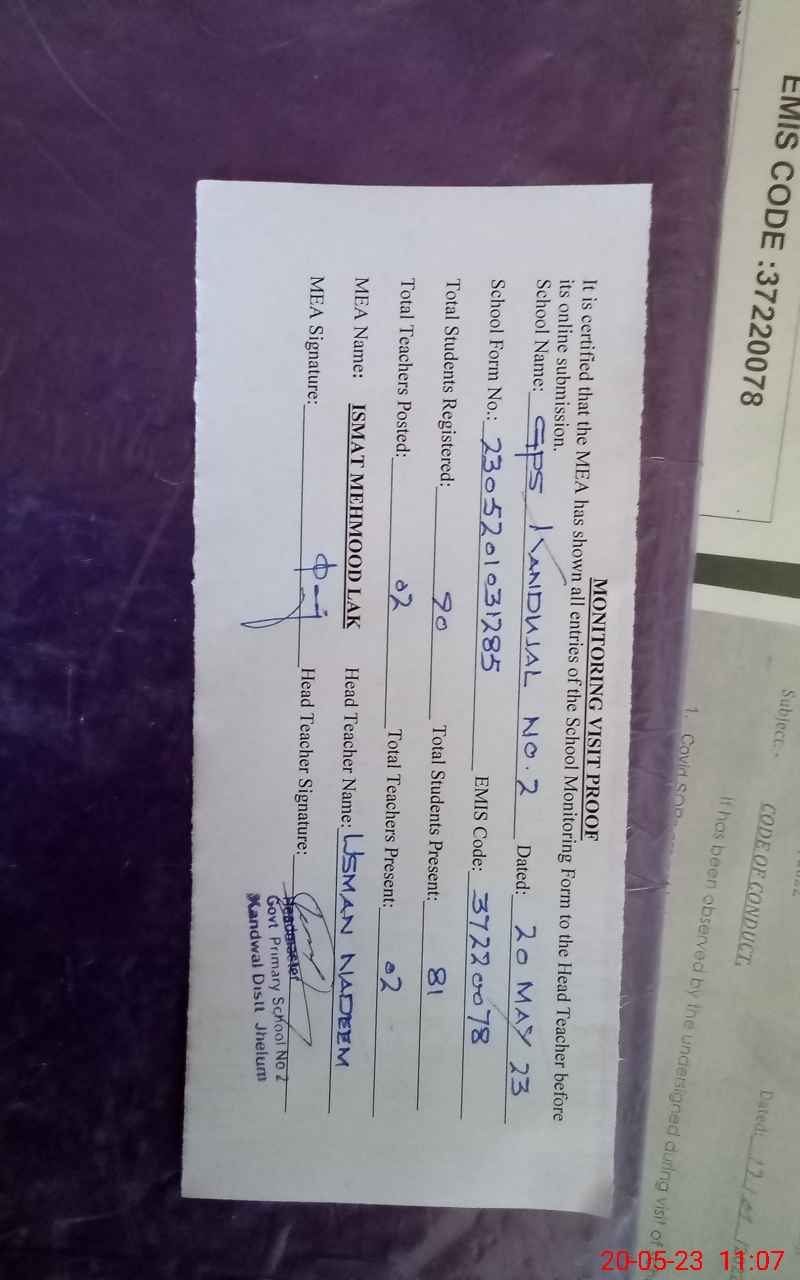 MONITORING VISIT PROOF
It is certified that the MEA has shown all entries of the School Monitoring Form to the Head Teacher before
its online submission.
School Name: GPS KANDWAL NO.2 Dated: 20 MAY 23
School Form No.: 2305201031285 EMIS Code: 37220078
Total Students Registered: 90 Total Students Present: 81
Total Teachers Posted: 02 Total Teachers Present: 02
MEA Name: ISMAT MEHMOOD LAK Head Teacher Name: USMAN NADEEM
MEA Signature: Head Teacher Signature:
Headmaster
Govt Primary School No 2
Kandwal Distt Jhelum
EMIS CODE :37220078
Dated:
Subject:-
CODE OF CONDUCT.
It has been observed by the undersigned during visit of
1. Covid SOP
20-05-23 11:07